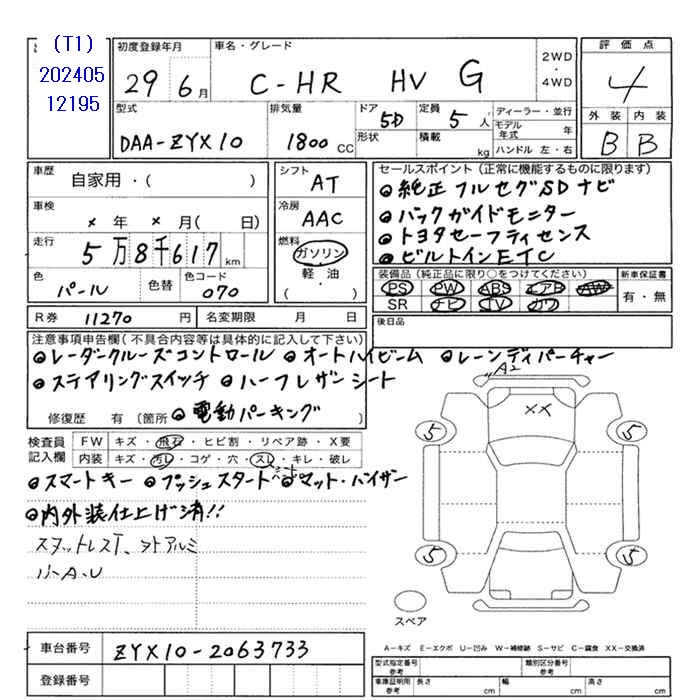 (T1)
202405
12195
初度登録年月
29 6月
車名・グレード
C-HR HV G
2WD
・
4WD
評価点
4
外装 内装
B B
型式
DAA-ZYX10
排気量
1800 CC
ドア
5D
形状
定員
5 人
積載
kg
ディーラー・並行
モデル年式 年
ハンドル 左・右
車歴
自家用・( )
車検
× 年 × 月( 日)
走行
5万8千617 km
色
パール
色替
色コード
070
シフト
AT
冷房
AAC
燃料
ガソリン
軽・油
( )
セールスポイント(正常に機能するものに限ります)
◎純正フルセグSDナビ
◎バックガイドモニター
◎トヨタセーフティセンス
◎ビルトインETC
装備品(純正品に限り○をつけてください)
PS PW ABS エアB AW
SR ナビ TV カワ
新車保証書
有・無
後日品
R券 11270 円
名変期限 月 日
注意事項申告欄(不具合内容等は具体的に記入して下さい)
◎レーダークルーズコントロール ◎オートハイビーム ◎レーンディパーチャー
◎ステアリングスイッチ ◎ハーフレザーシート
修復歴 有(箇所 ◎電動パーキング )
検査員
記入欄
FW キズ・飛石・ヒビ割・リペア跡・X要
内装 キズ・汚レ・コゲ・穴・スレ・キレ・破レ
シート
◎スマートキー ◎プッシュスタート ◎マット・バイザー
◎内外装仕上げ済!!
スタットレスT、ソトアルミ
小A・U
A2
XX
5
5
5
5
スペア
車台番号
ZYX10-2063733
登録番号
A-キズ E-エクボ U-凹み W-補修跡 S-サビ C-腐食 XX-交換済
型式指定番号
参考
類別区分番号
参考
車庫証明用
参考
長さ cm
幅 cm
高さ cm